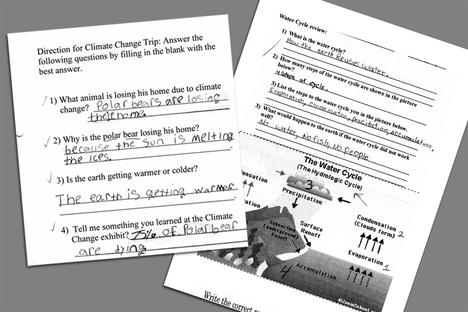 Direction for Climate Change Trip: Answer the
following questions by filling in the blank with the
best answer.
1) What animal is losing his home due to climate
change? Polar bears are losing
their home
2) Why is the polar bear losing his home?
because the sun is melting
the ices
3) Is the earth getting warmer or colder?
The earth is getting warmer
4) Tell me something you learned at the Climate
Change exhibit? 75% of Polar bear
are dying
Water Cycle review:
1) What is the water cycle?
How the earth Reuses water.
2) How many steps of the water cycle are shown in the picture
below?
4 steps of cycle
3) List the steps to the water cycle you in the picture below.
Evaporation, Condensation, precipitation, accumulation,
3) What would happen to the earth if the water cycle did not work
well?
No water, No fish, No people
The Water Cycle
(The Hydrologic Cycle)
3
Precipitation
Condensation
(Clouds form) 2
Surface
Runoff
Subsurface
(underground)
Runoff
Evaporation 1
4 Accumulation
Write the correct